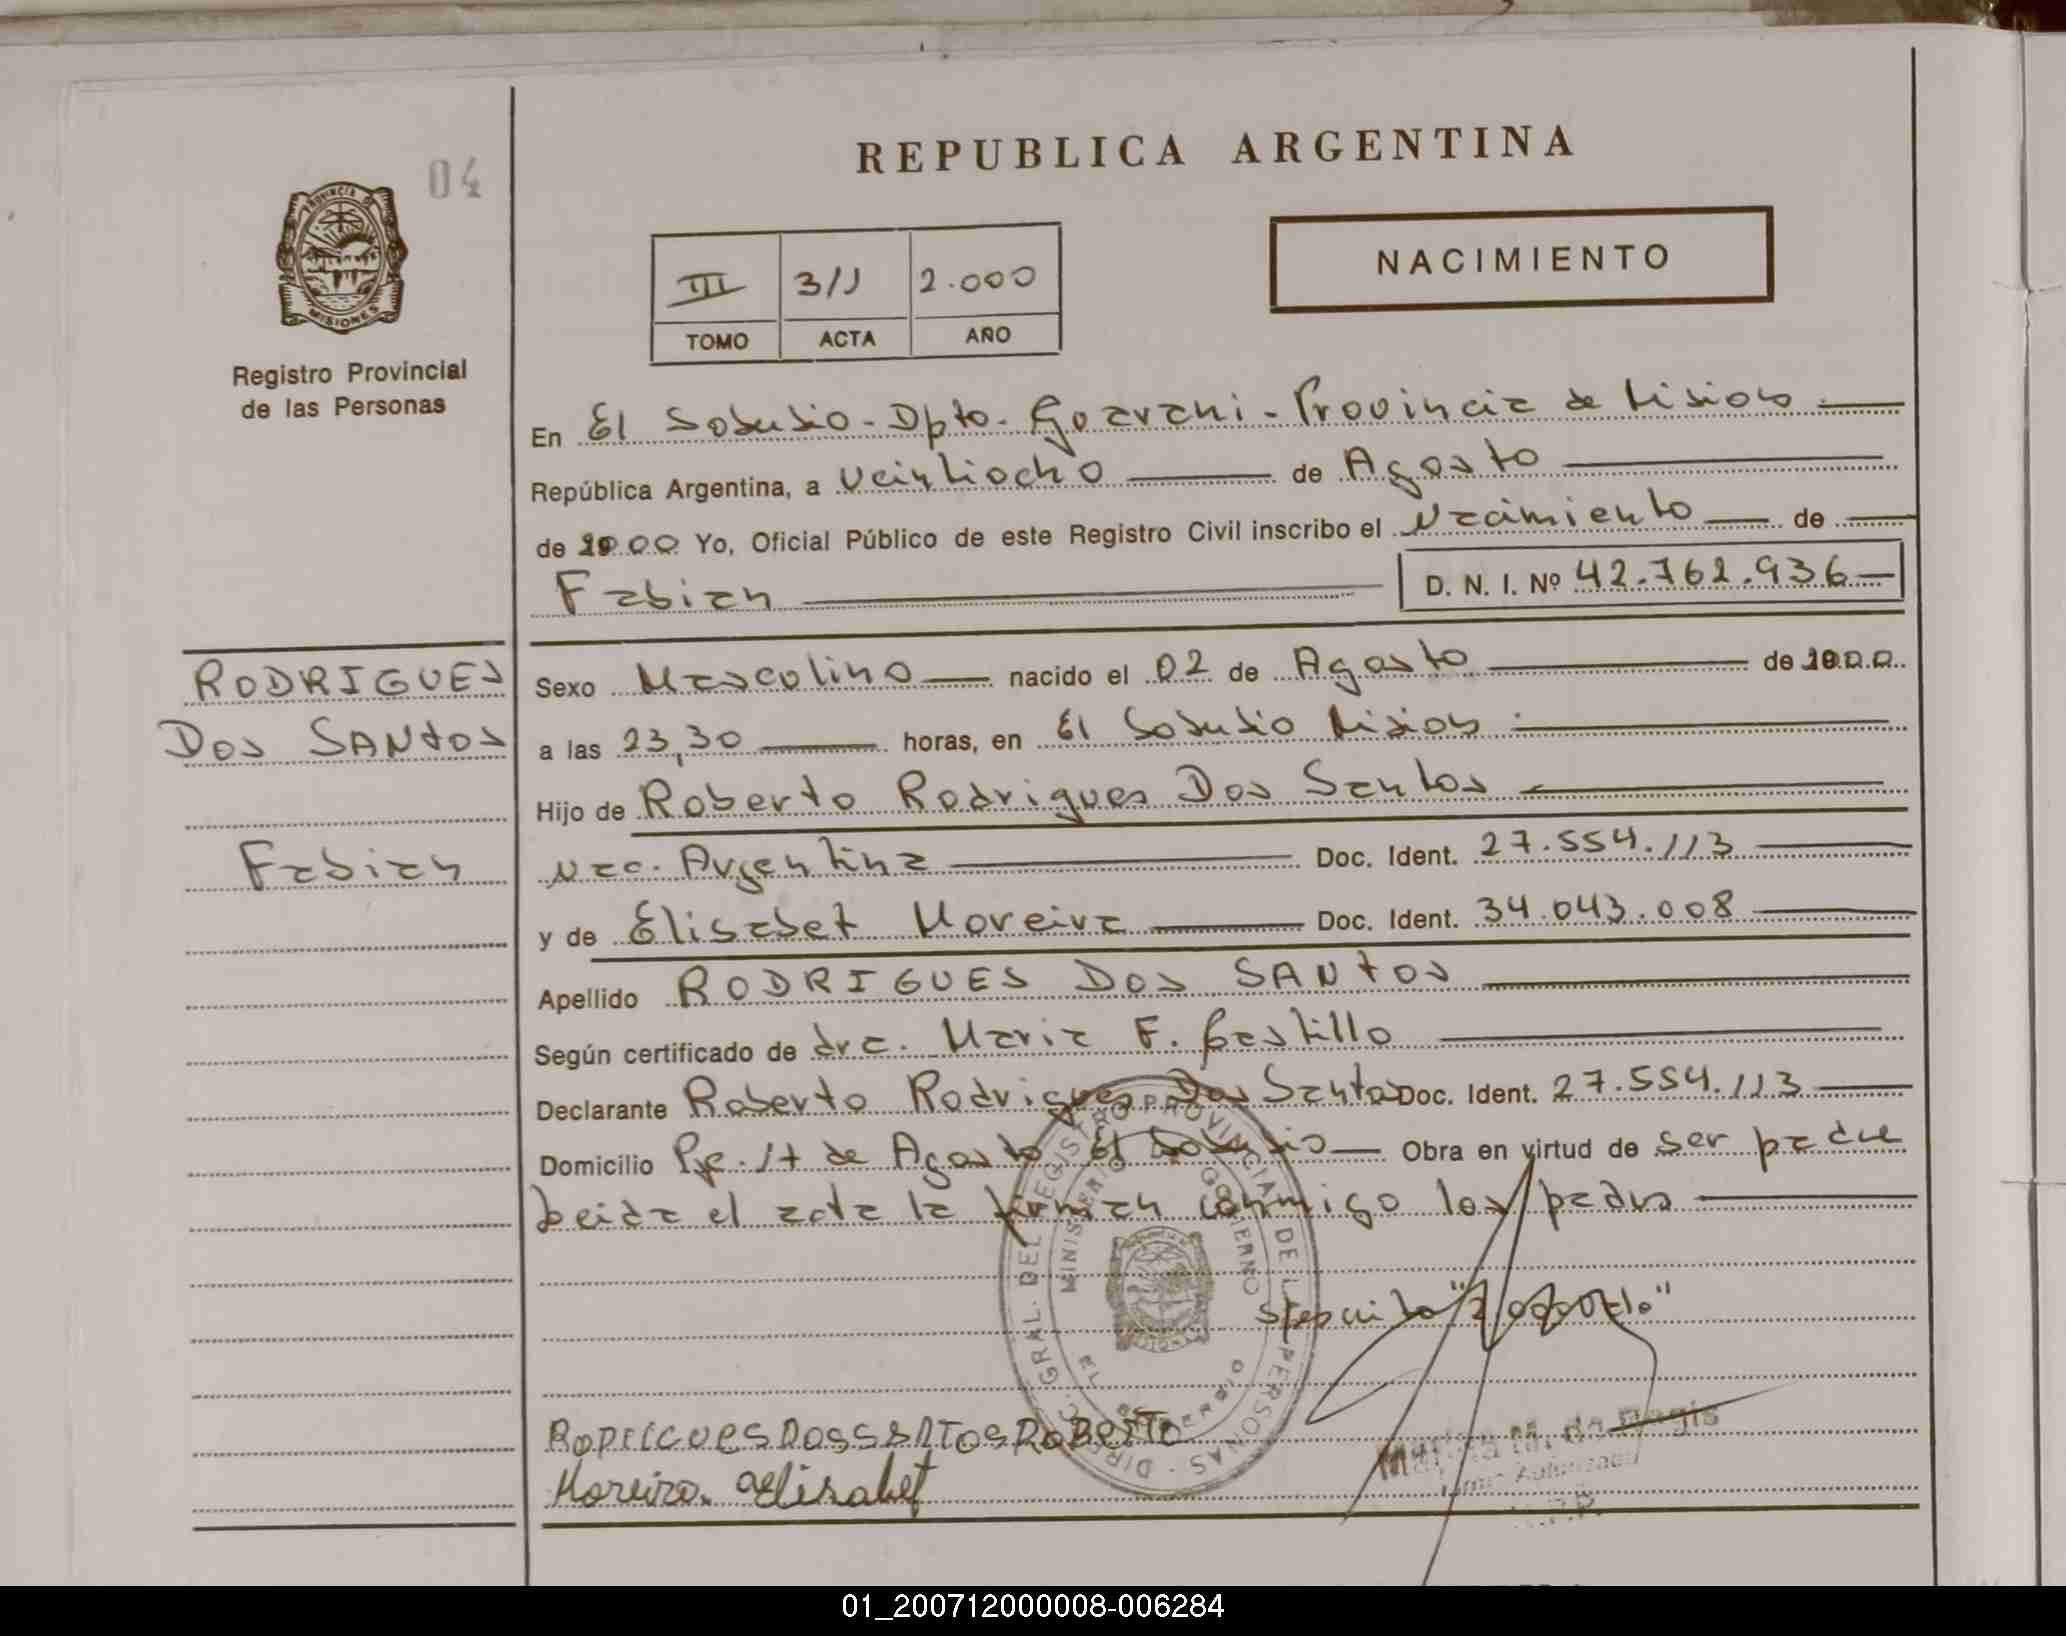 04
PROVINCIA DE
MISIONES
Registro Provincial
de las Personas
REPUBLICA ARGENTINA
III 311 2.000
TOMO ACTA AÑO
NACIMIENTO
En El Soberbio - Dpto. Guarani - Provincia de Misiones
República Argentina, a veintiocho de Agosto
de 2000 Yo, Oficial Público de este Registro Civil inscribo el Nacimiento de
Fabian D. N. I. Nº 42.762.936
RODRIGUES
DOS SANTOS
Fabian
Sexo Masculino nacido el 02 de Agosto de 2000
a las 23,30 horas, en El Soberbio Misiones
Hijo de Roberto Rodrigues Dos Santos
Nac. Argentina Doc. Ident. 27.554.113
y de Elisabet Moreira Doc. Ident. 34.043.008
Apellido RODRIGUES DOS SANTOS
Según certificado de dra. Maria F. Castillo
Declarante Roberto Rodrigues Dos Santos Doc. Ident. 27.554.113
Domicilio Pje. 17 de Agosto El Soberbio Obra en virtud de ser padre
leida el acta la firman conmigo los padres
DIREC. GRAL. DEL REGISTRO PROVINCIAL DE L PERSONAS
MINISTERIO GOBIERNO
EL SOBERBIO
RODRIGUES DOS SANTOS ROBERTO
Moreira Elisabet
M. de Regis